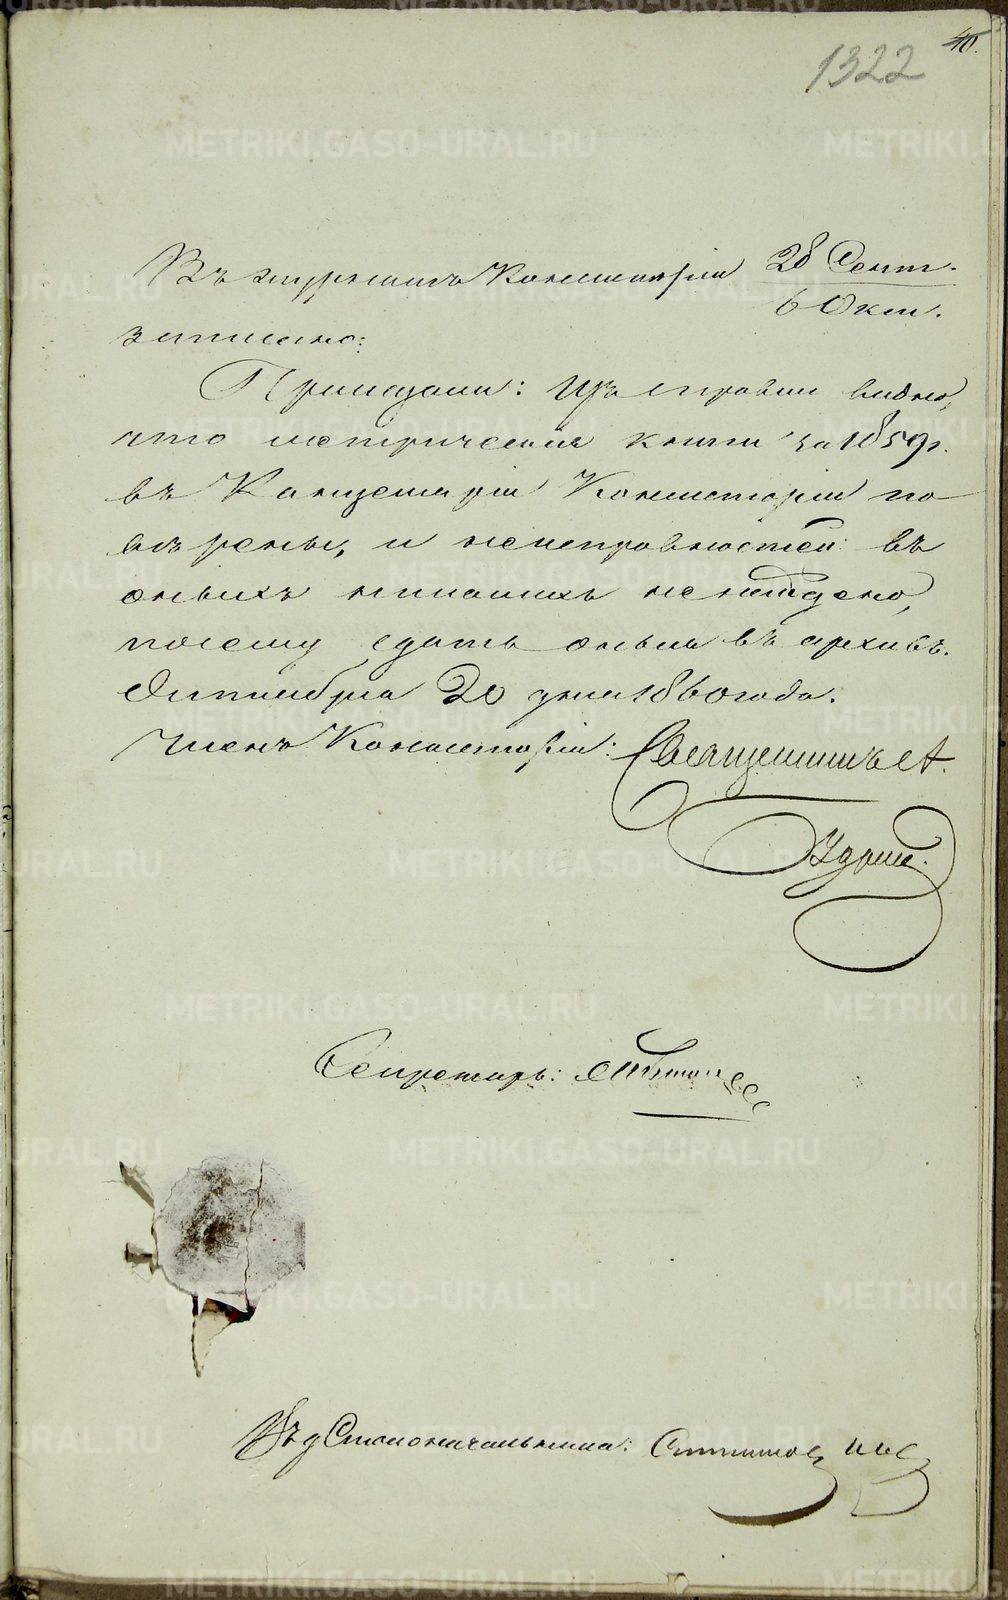 40.
1322
Въ журналѣ Консисторіи 28 Сент.
6 Окт.
записано:
Приказали: Изъ справки видно,
что метрическія книги за 1859 г.
въ Канцеляріи Консисторіи по
вѣрены, и неисправностей въ
оныхъ никакихъ не найдено,
почему сдать оныя въ архивъ.
Октября 20 дня 1860 года.
Членъ Консисторіи: Священникъ А.
Удинц.
Секретарь:
Столоначальника:
METRIKI.GASO-URAL.RU